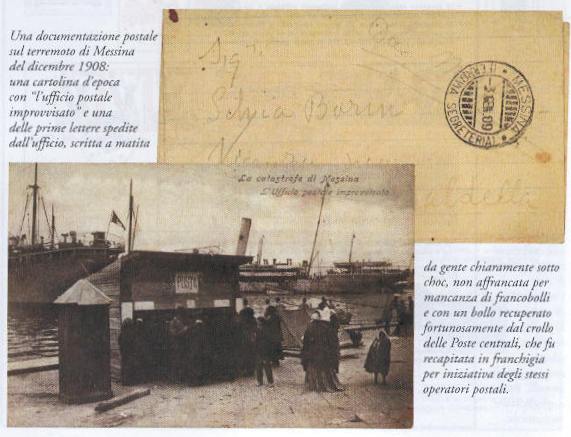 Una documentazione postale
sul terremoto di Messina
del dicembre 1908:
una cartolina d'epoca
con "l'ufficio postale
improvvisato" e una
delle prime lettere spedite
dall'ufficio, scritta a matita
Sig.
Silvia Borin
MESSINA
SEGRETERIA
La catastrofe di Messina
L'Ufficio postale improvvisato
POSTA
da gente chiaramente sotto
choc, non affrancata per
mancanza di francobolli
e con un bollo recuperato
fortunosamente dal crollo
delle Poste centrali, che fu
recapitata in franchigia
per iniziativa degli stessi
operatori postali.